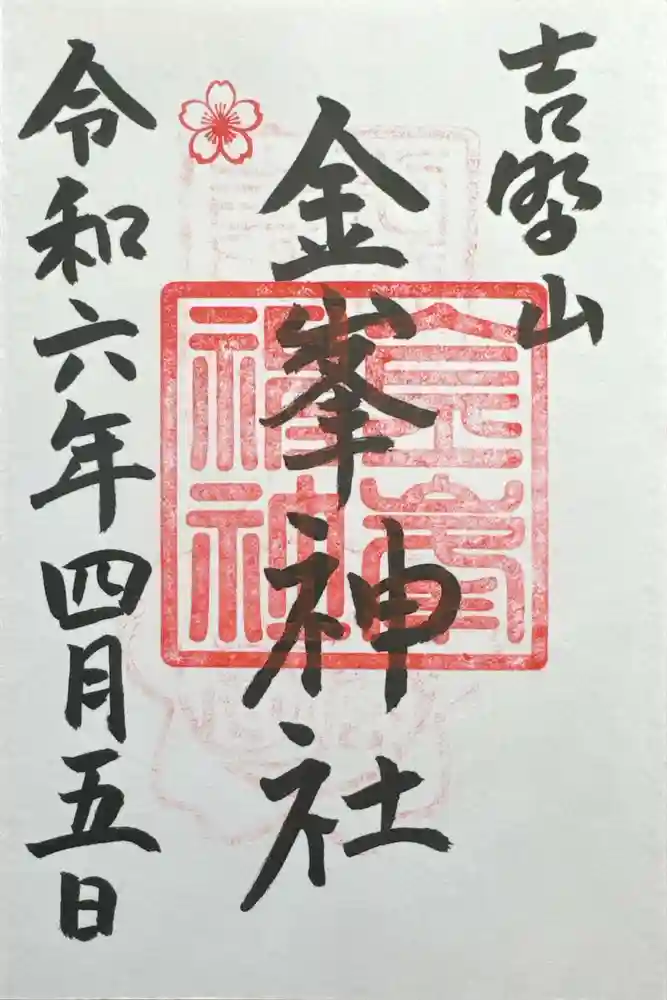 吉野山
金峯神社
金峯神社
令和六年四月五日